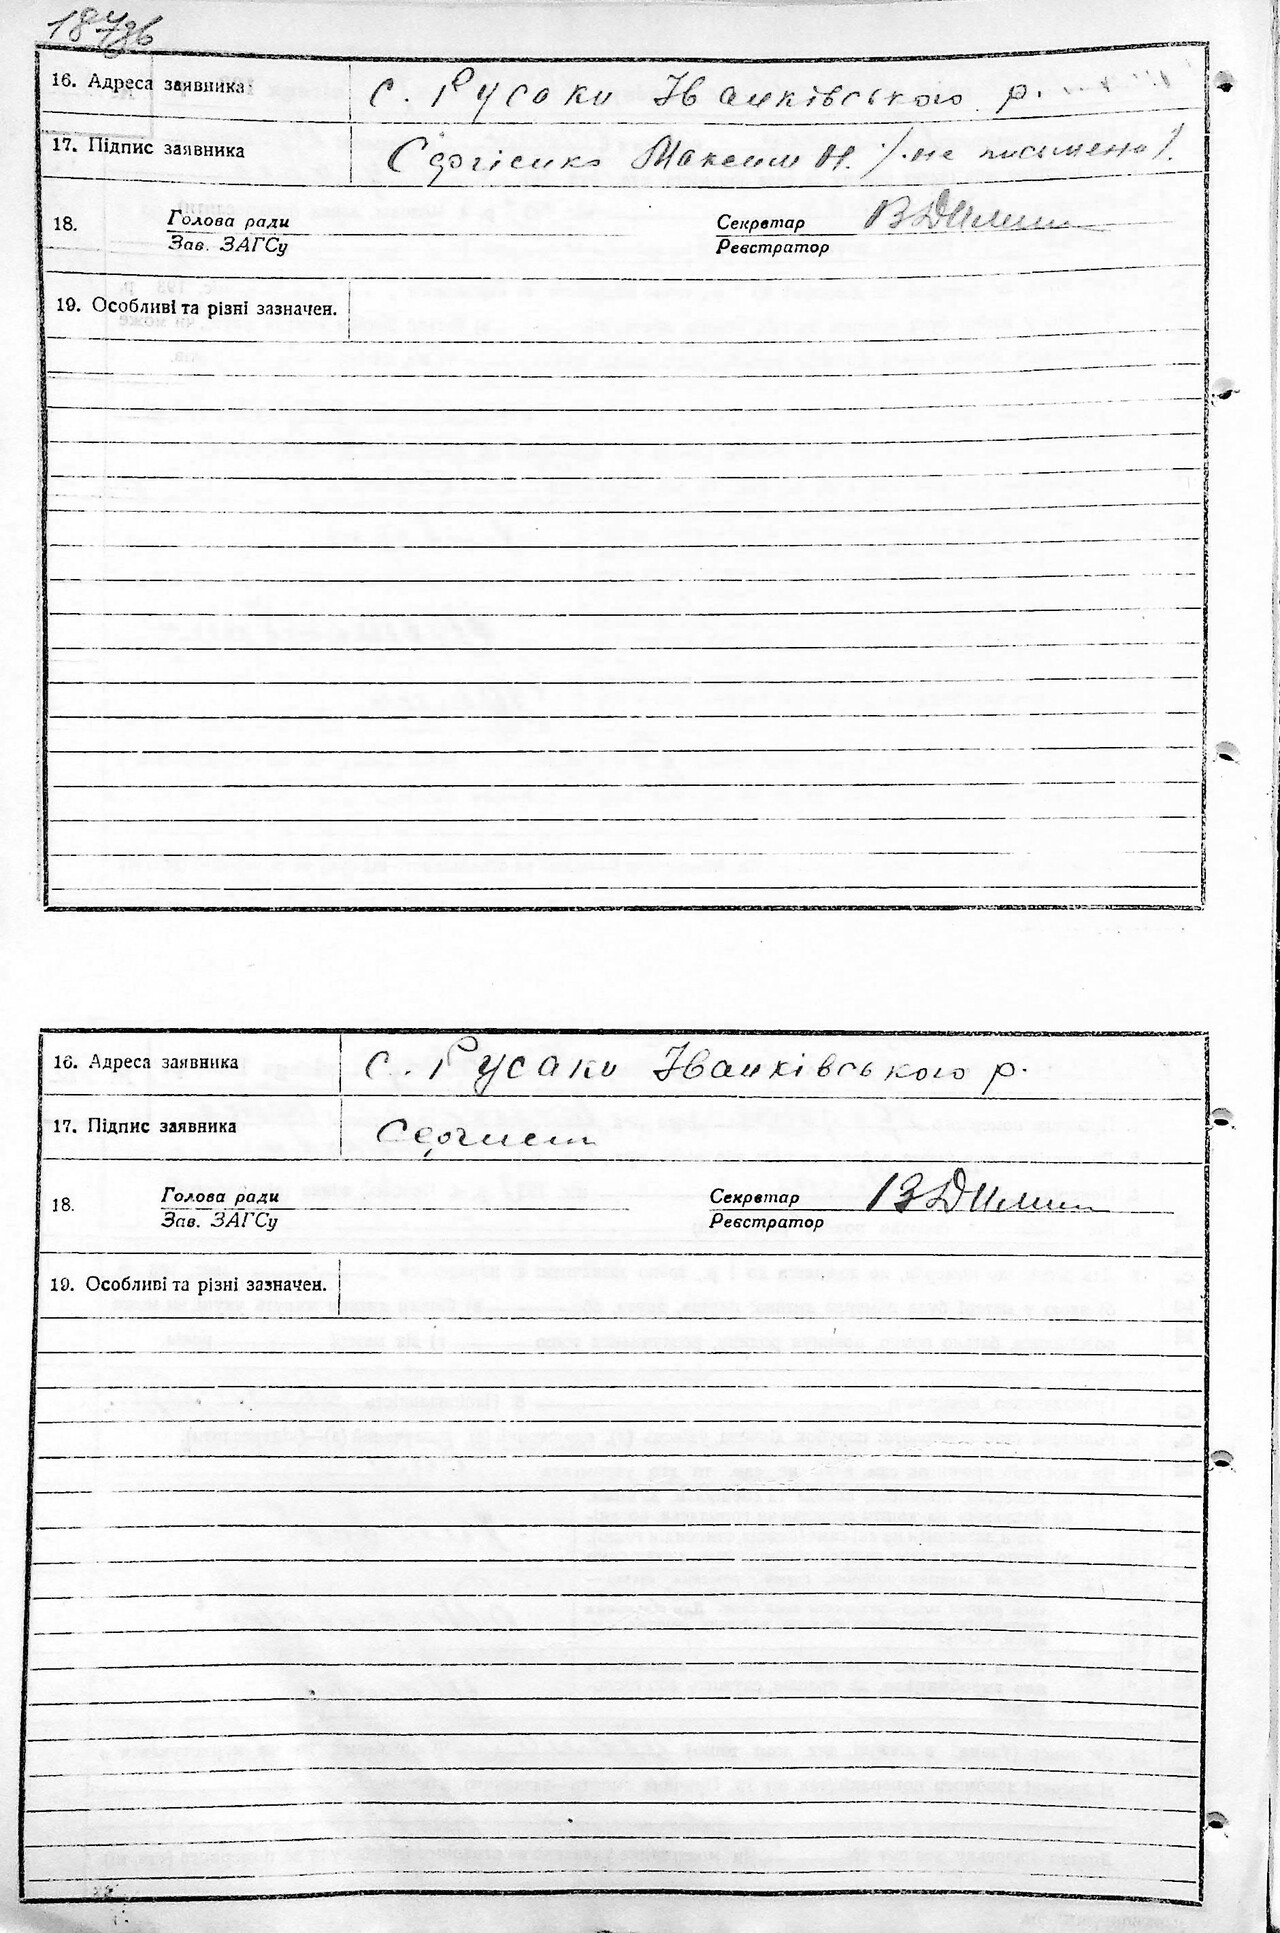 187зв
16. Адреса заявника
с. Русаки Іванківського р.
17. Підпис заявника
Сергієнко Максим Н. /не письмено/.
18.
Голова ради
Зав. ЗАГСу
Секретар
Реєстратор
19. Особливі та різні зазначен.
16. Адреса заявника
с. Русаки Іванківського р.
17. Підпис заявника
18.
Голова ради
Зав. ЗАГСу
Секретар
Реєстратор
19. Особливі та різні зазначен.